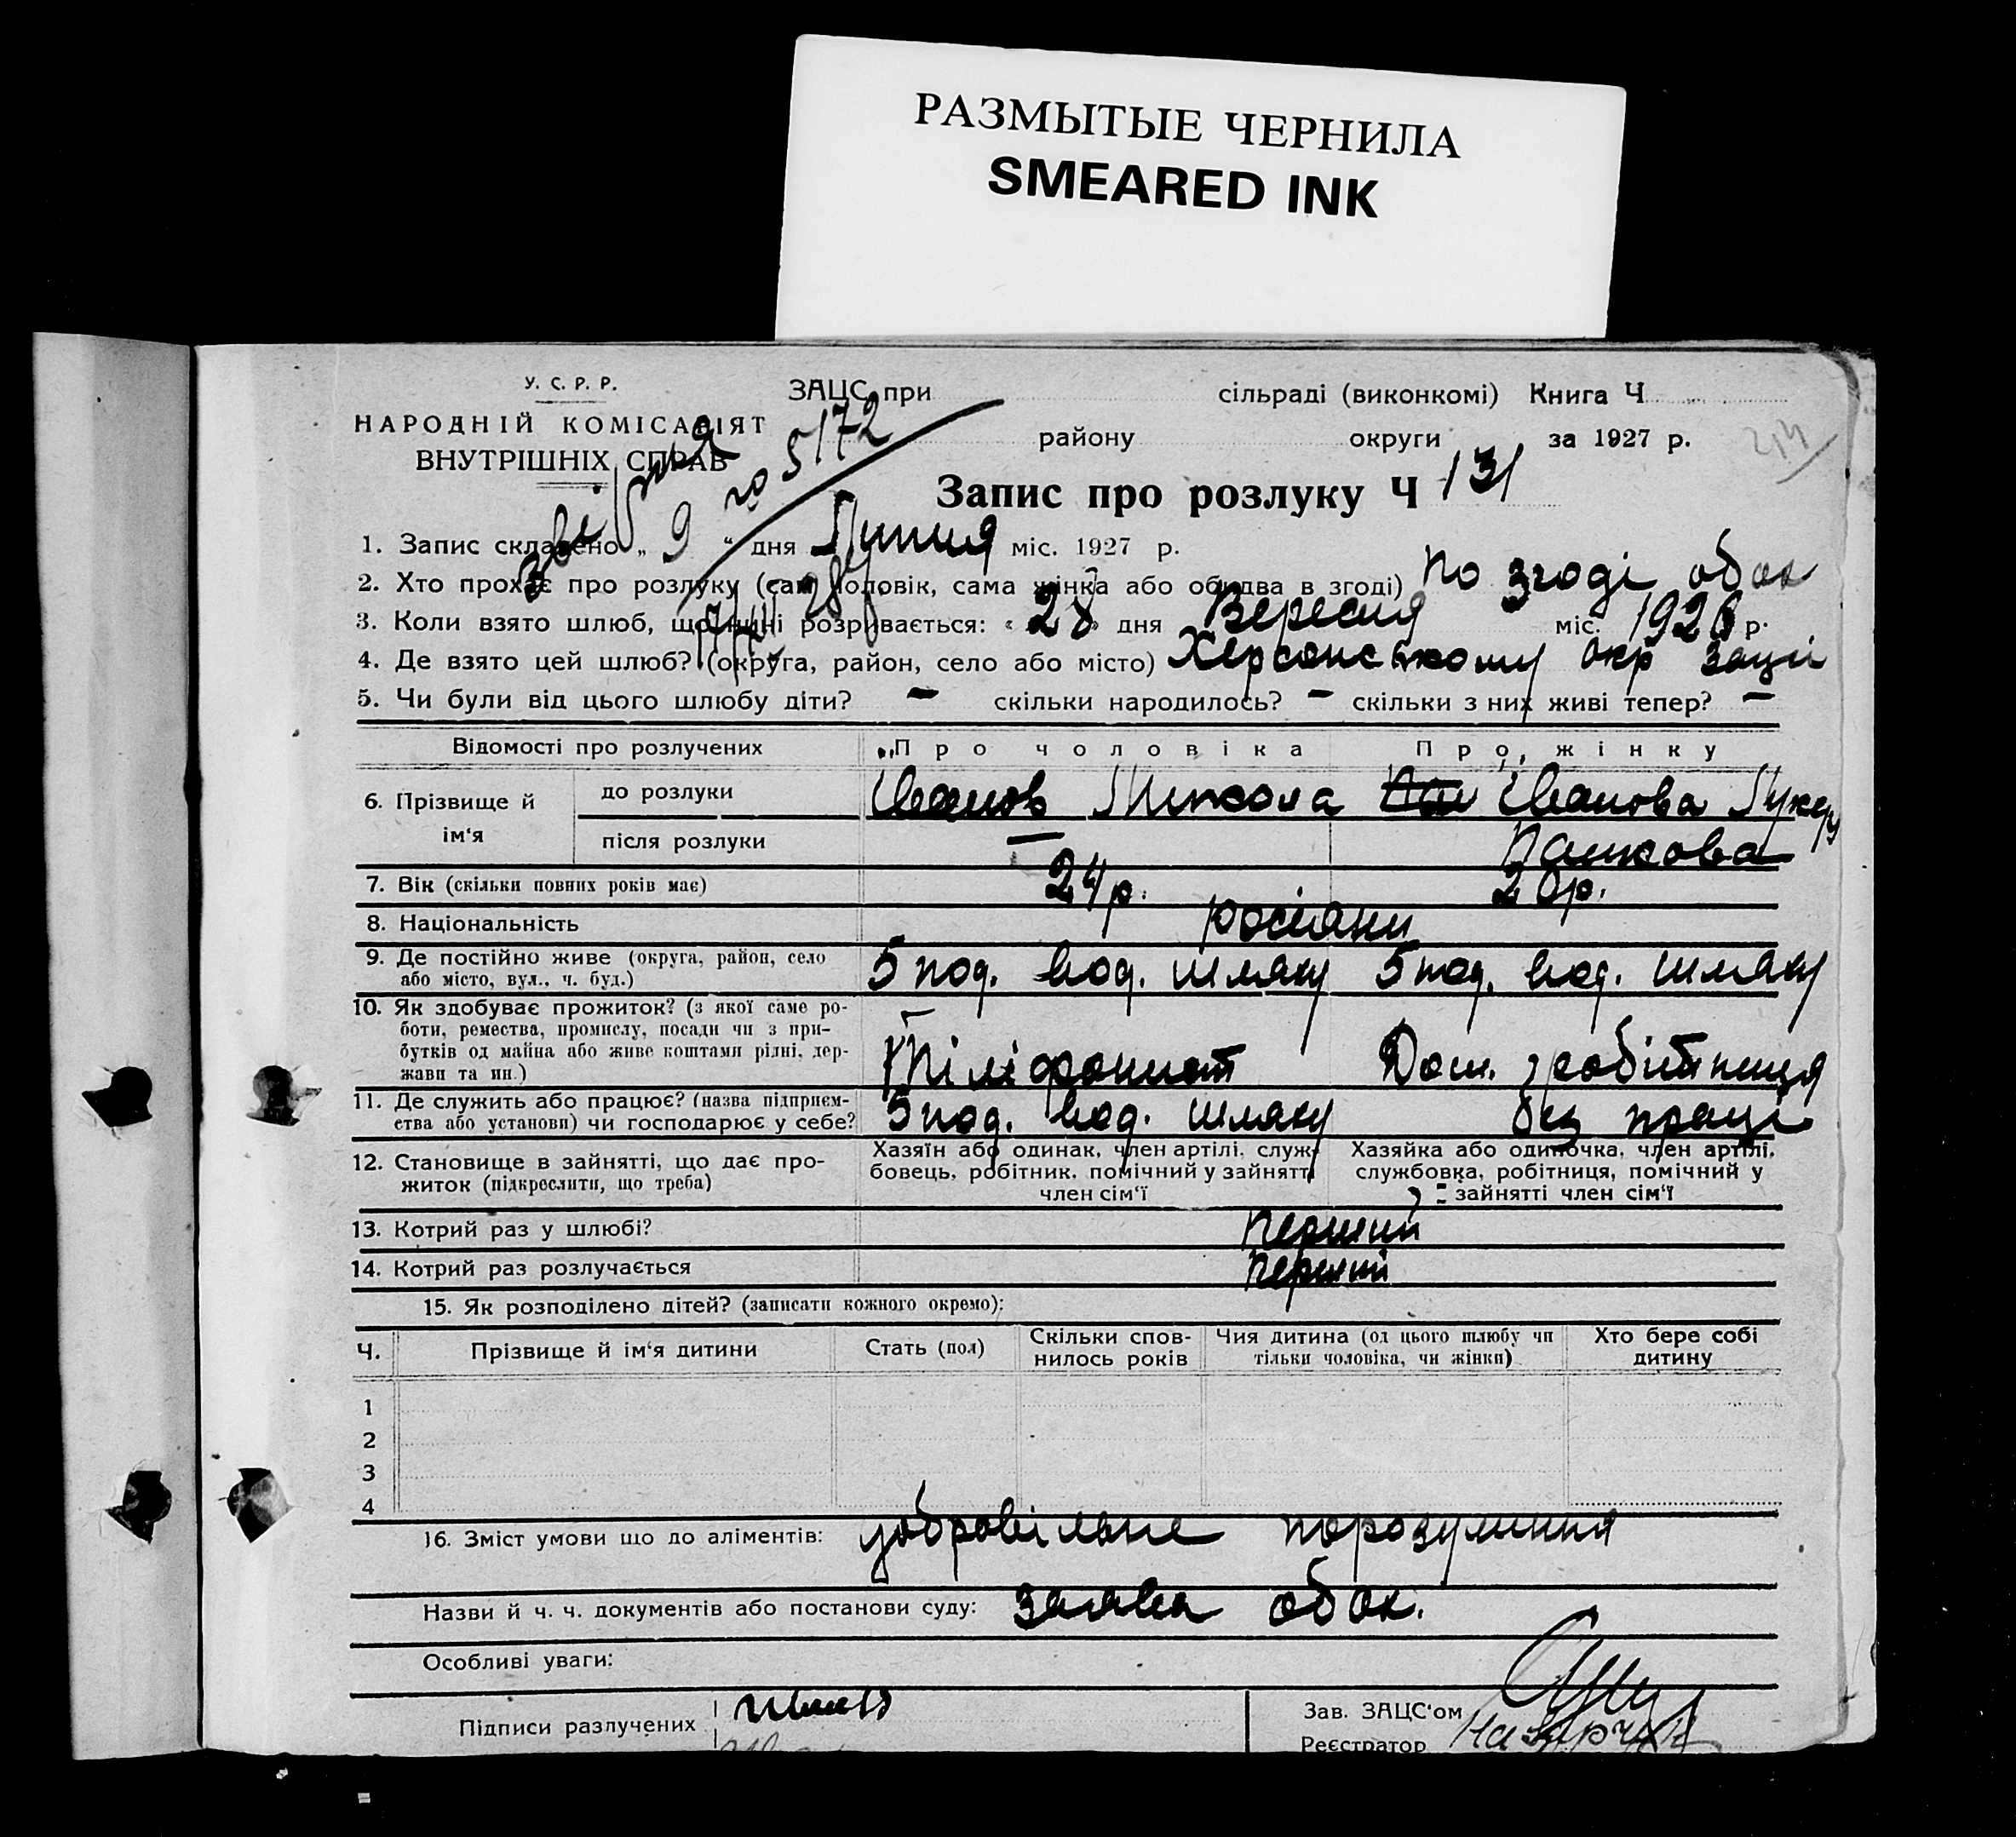 РАЗМЫТЫЕ ЧЕРНИЛА
SMEARED INK
У. С. Р. Р.
НАРОДНІЙ КОМІСАРІЯТ
ВНУТРІШНІХ СПРАВ
ЗАЦС при сільраді (виконкомі) Книга Ч
району округи за 1927 р.
Запис про розлуку Ч 131
5172
1. Запис складено „ 9 “ дня Липня міс. 1927 р.
2. Хто прохає про розлуку (сам чоловік, сама жінка або обидва в згоді) по згоді обох
3. Коли взято шлюб, що нині розривається: „ 28 “ дня Вересня міс. 1926 р.
4. Де взято цей шлюб? (округа, район, село або місто) Херсонському окр Зацсі
5. Чи були від цього шлюбу діти? — скільки народилось? — скільки з них живі тепер? —
Відомості про розлучених Про чоловіка Про жінку
6. Прізвище й ім‘я
до розлуки Іванов Микола Іванова Лукер
після розлуки — Панкова
7. Вік (скільки повних років має) 24 р. 20 р.
8. Національність росіяни
9. Де постійно живе (округа, район, село
або місто, вул., ч. буд.) 5 под. вод. шляху 5 под. вод. шляху
10. Як здобуває прожиток? (з якої саме ро-
боти, ремества, промислу, посади чи з при-
бутків од майна або живе коштами рідні, дер-
жави та ин.) Тіліфонист Дом. робітниця
11. Де служить або працює? (назва підприєм-
ства або установи) чи господарює у себе? 5 под. вод. шляху без праці
12. Становище в зайнятті, що дає про-
житок (підкреслити, що треба)
Хазяїн або одинак, член артілі, служ-
бовець, робітник, помічний у зайнятті
член сім‘ї
Хазяйка або одиночка, член артілі,
службовка, робітниця, помічний у
зайнятті член сім‘ї
13. Котрий раз у шлюбі? Перший
14. Котрий раз розлучається Перший
15. Як розподілено дітей? (записати кожного окремо):
Ч. Прізвище й ім‘я дитини Стать (пол) Скільки спов-
нилось років Чия дитина (од цього шлюбу чи
тільки чоловіка, чи жінки) Хто бере собі
дитину
1
2
3
4
16. Зміст умови що до аліментів: добровільне порозуміння
Назви й ч. ч. документів або постанови суду: заява обох.
Особливі уваги:
Підписи разлучених
Зав. ЗАЦС‘ом
Реєстратор Назарчук